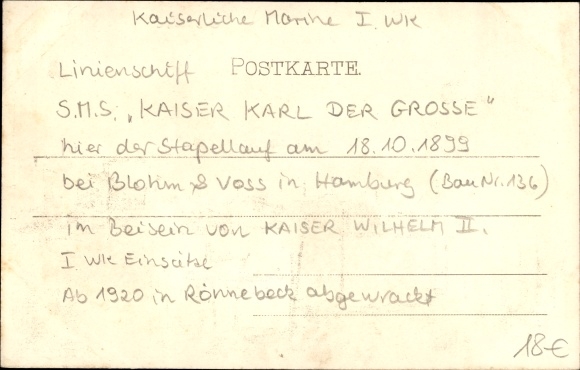 Kaiserliche Marine I. WK
Linienschiff POSTKARTE.
S.M.S. „KAISER KARL DER GROSSE"
hier der Stapellauf am 18.10.1899
bei Blohm & Voss in Hamburg (Bau Nr. 136)
im Beisein von KAISER WILHELM II.
I WK Einsätze
Ab 1920 in Rönnebeck abgewrackt
18€